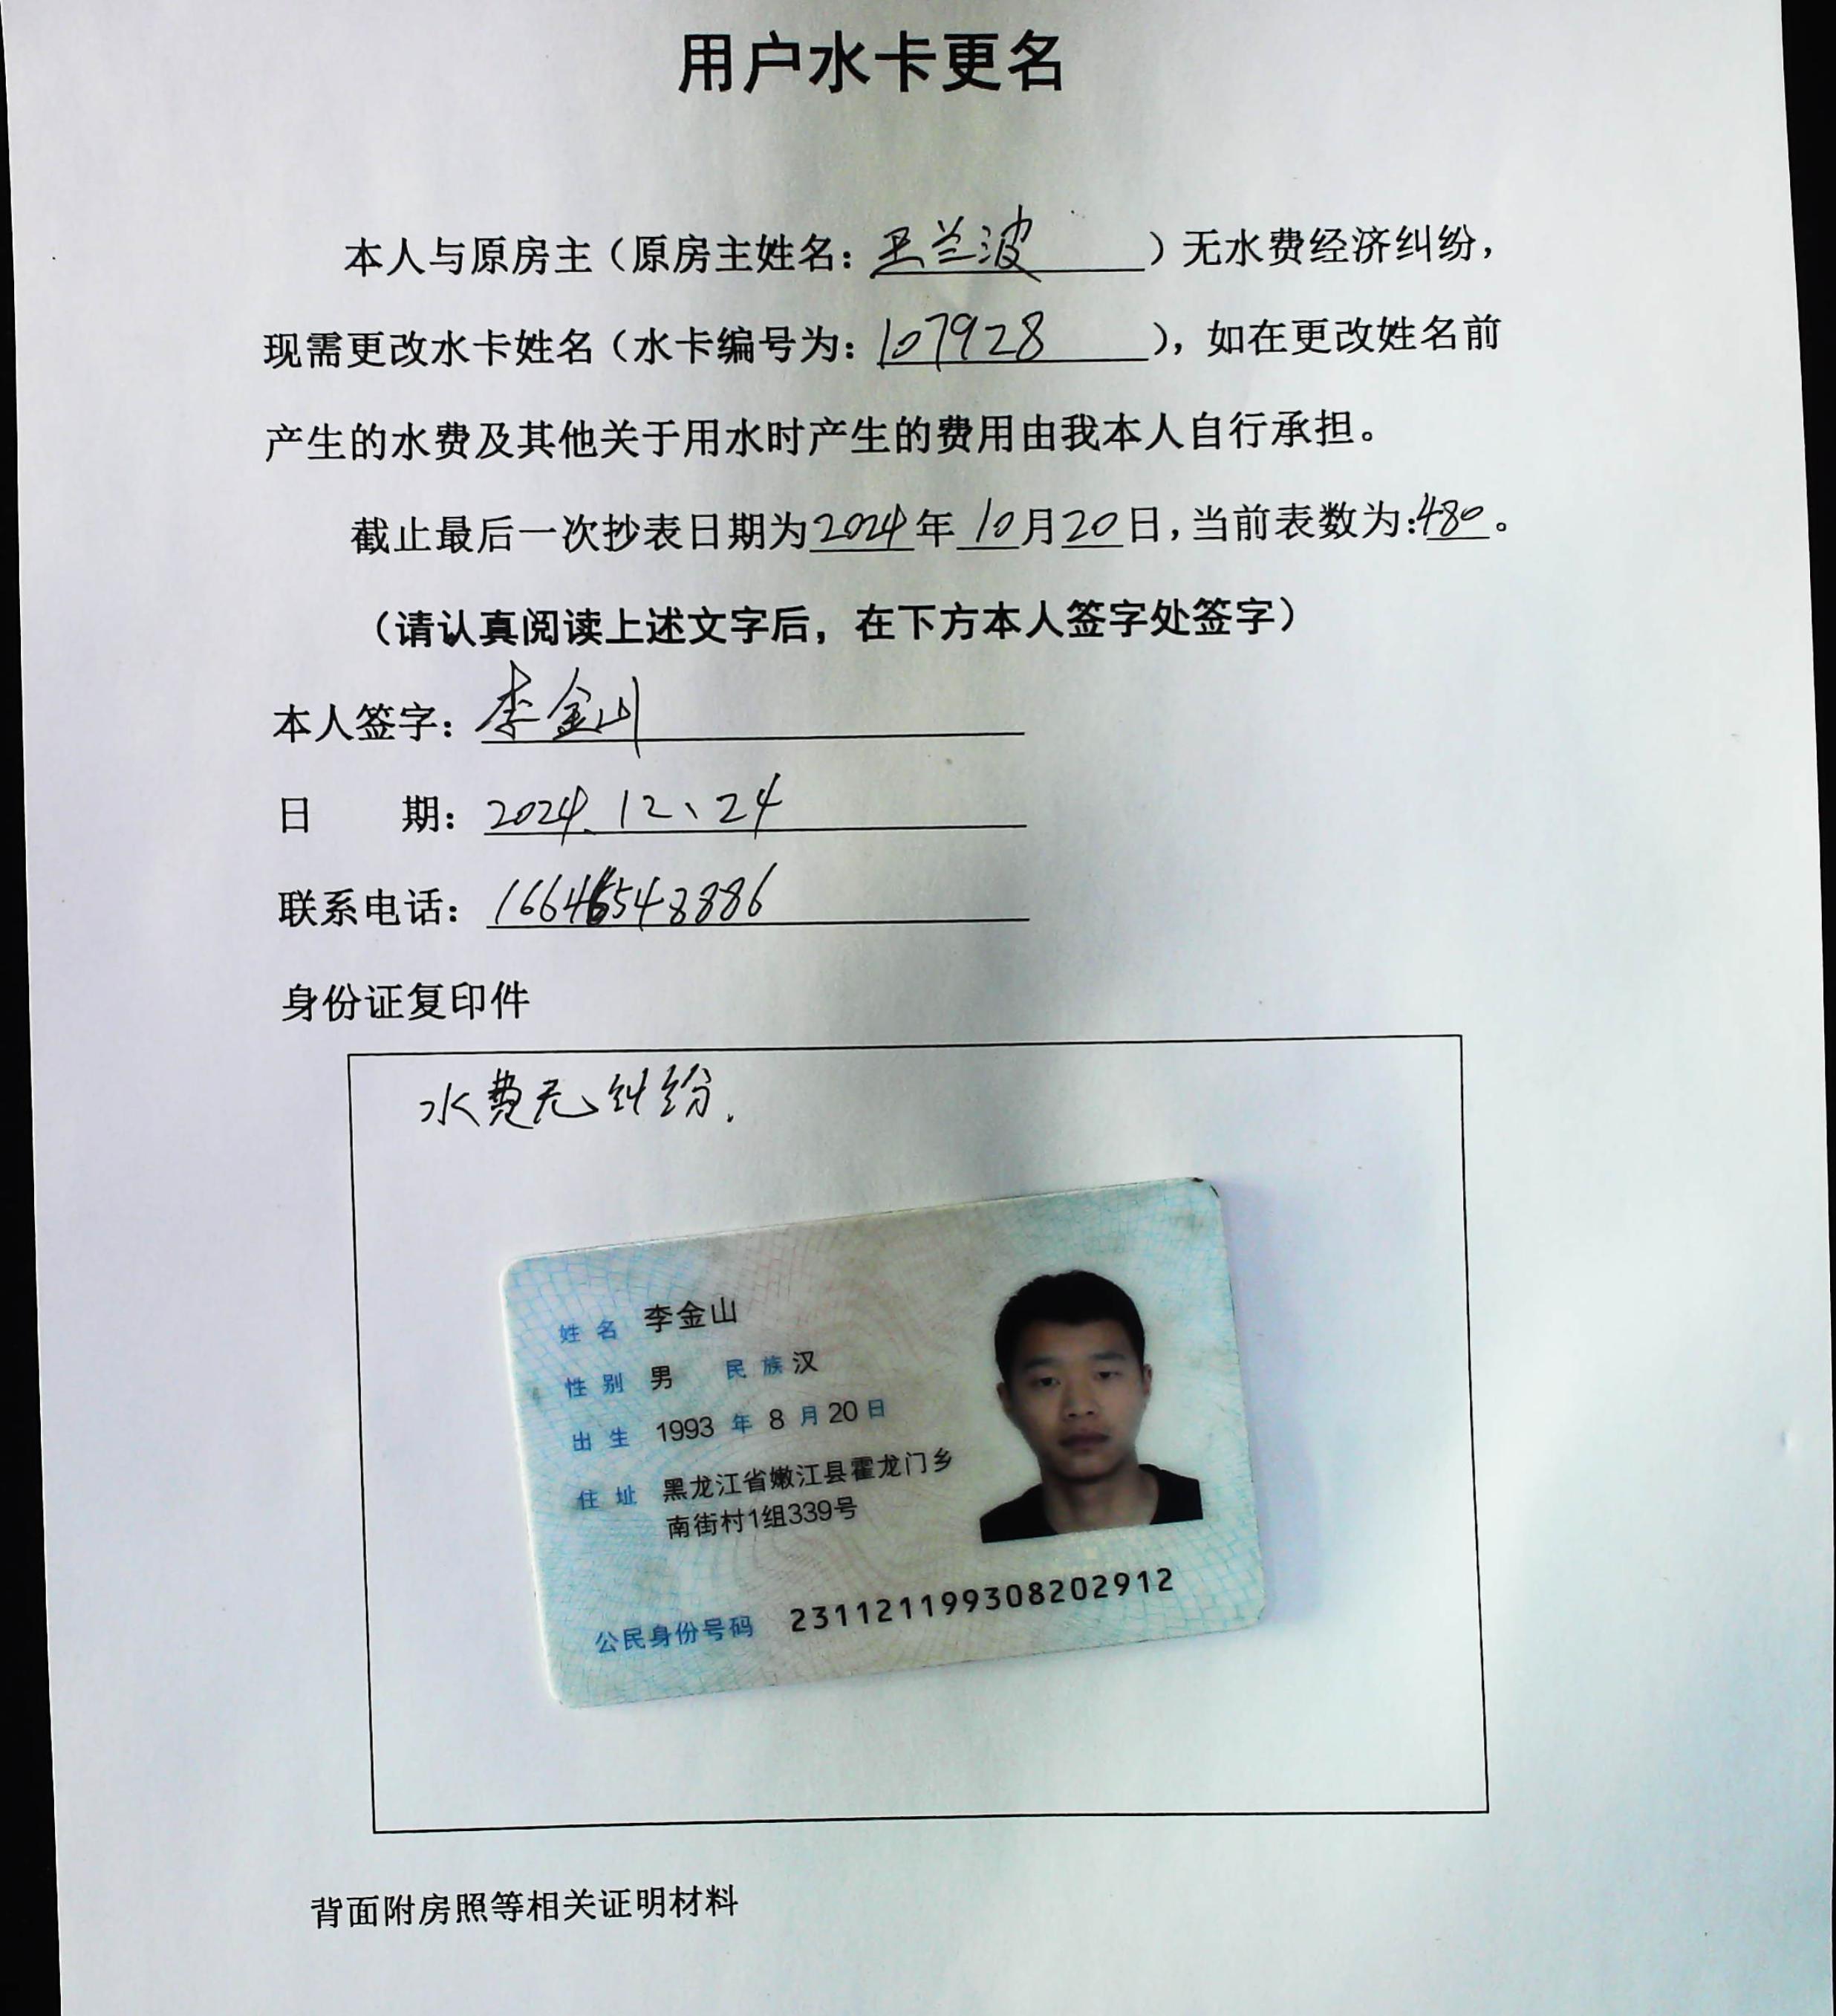 用户水卡更名
本人与原房主（原房主姓名：王兰波）无水费经济纠纷，
现需更改水卡姓名（水卡编号为：107928），如在更改姓名前
产生的水费及其他关于用水时产生的费用由我本人自行承担。
截止最后一次抄表日期为2024年10月20日，当前表数为：480。
（请认真阅读上述文字后，在下方本人签字处签字）
本人签字：李金山
日 期：2024.12、24
联系电话：16646548886
身份证复印件
水费无纠纷.
姓名 李金山
性别 男 民族 汉
出生 1993 年 8 月 20 日
住址 黑龙江省嫩江县霍龙门乡
南街村1组339号
公民身份号码 231121199308202912
背面附房照等相关证明材料